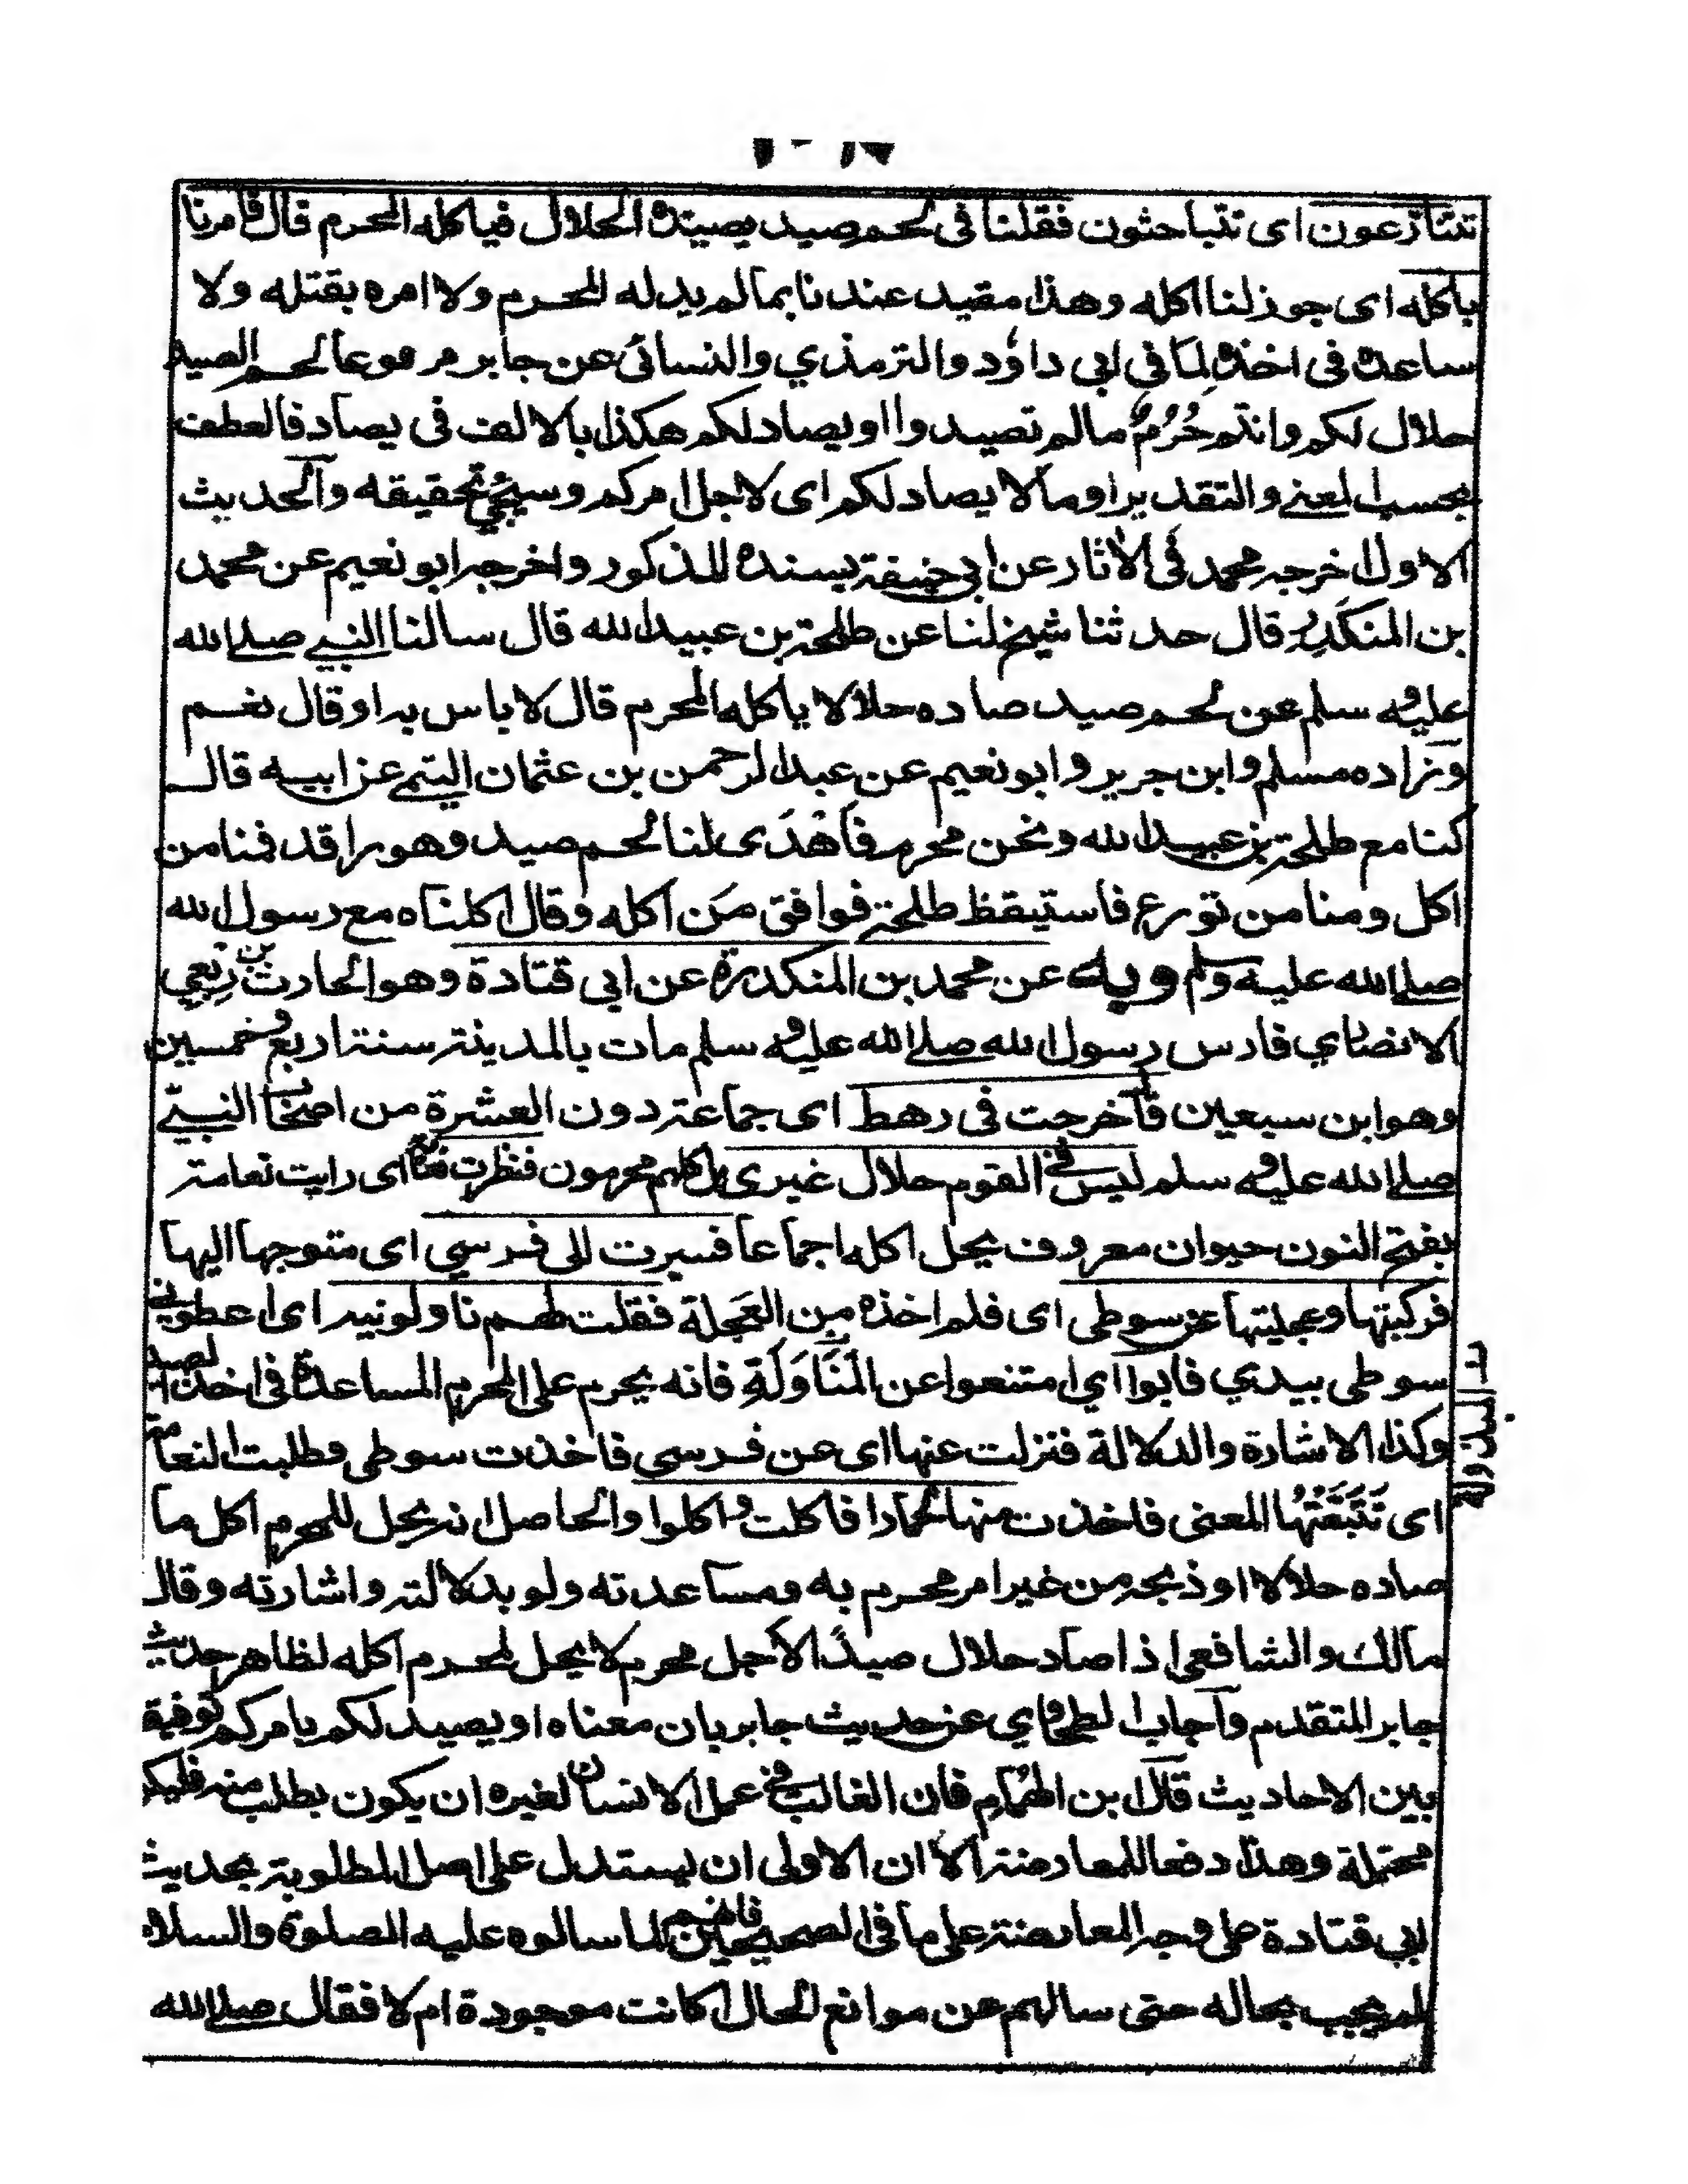 تتنازعون اى تتباحثون فقلنا فى لحم صيد يصيده الحلال فياكله المحرم قال فامرنا
باكله اى جوز لنا اكله وهذا مقيد عندنا بما لم يدله المحرم ولا امره بقتله ولا
ساعده فى اخذه لِمَا في ابى داؤد والترمذي والنسائى عن جابر مرفوعا لحم الصيد
حلال لكم وانتم حُرُمٌ مالم تصيدوا او يصاد لكم هكذا بالالف فى يصاد فالعطف
بحسب المعنے والتقدير او مالا يصاد لكم اى لاجل امركم وسيجئ تحقيقه والحديث
الاول اخرجه محمد فى الأثار عن ابى حنيفة بسنده المذكور واخرجه ابو نعيم عن محمد
بن المنكدِر قال حدثنا شيخ لنا عن طلحة بن عبيد الله قال سالنا النبے صلے الله
عليه وسلم عن لحم صيد صاده حلالا ياكله المحرم قال لا باس به او قال نعم
وزاده مسلم وابن جرير وابو نعيم عن عبد الرحمن بن عثمان التيمى عن ابيه قال
كنا مع طلحة بن عبيد الله ونحن محرم فأهْدَى لنا لحم صيد وهو راقد فمنا من
اكل ومنا من تورع فاستيقظ طلحة فوافق مَن اكله وقال اكلناه مع رسول الله
صلے الله عليه وسلم وبه عن محمد بن المنكدر عن ابى قتادة وهو الحارث بن رِبعي
الانصاري فارس رسول الله صلے الله عليه وسلم مات بالمدينة سنة اربع وخمسين
وهو ابن سبعين قال خرجت فى رهط اى جماعة دون العشرة من اصحاب النبےّ
صلے الله عليه وسلم ليس فے القوم حلال غيرى بل كلهم محرمون فنظرت نعامة اى رايت نعامة
بفتح النون حيوان معروف يحل اكله اجماعا فسرت الى فرسي اى متوجها اليها
فركبتها وعجليتها عن سوطى اى فلم اخذه مِن العَجلة فقلت لهم ناولونيه اى اعطونے
سوطى بيدي فابوا اي امتنعوا عن المُنَاوَلَةِ فانه يحرم على المحرم المساعدة فى اخذ الصيد
وكذا الاشارة والدلالة فنزلت عنها اى عن فرسي فاخذت سوطى وطلبت النعامة
اى تَتَبَّعْتُهَا المعنى فاخذت منها حمارا فاكلت واكلوا والحاصل انه يحل للمحرم اكل ما
صاده حلالا او ذبحه من غير امر محرم به ومساعدته ولو بدلالته واشارته وقال
مالك والشافعى اذا صاد حلال صيدًا لأجل محرم لا يحل لمحرم اكله لظاهر حديث
جابر المتقدم وأجاب الطحاوي عن حديث جابر بان معناه او يصيد لكم بامركم توفيقا
بين الاحاديث قال بن الهُمام فان الغالب فے عمل الانسان لغيره ان يكون بطلب منه فليكن
محتملة وهذا دفعا للمعارضة الا ان الاولى ان يستدل على اصل المطلوبة بحديث
ابى قتادة على وجه المعارضة على ما فى الصحيحين فانهم لما سالوه عليه الصلوة والسلام
لم يجب بحاله حتى سالهم عن موانع الحال اكانت موجودة ام لا فقال صلے الله